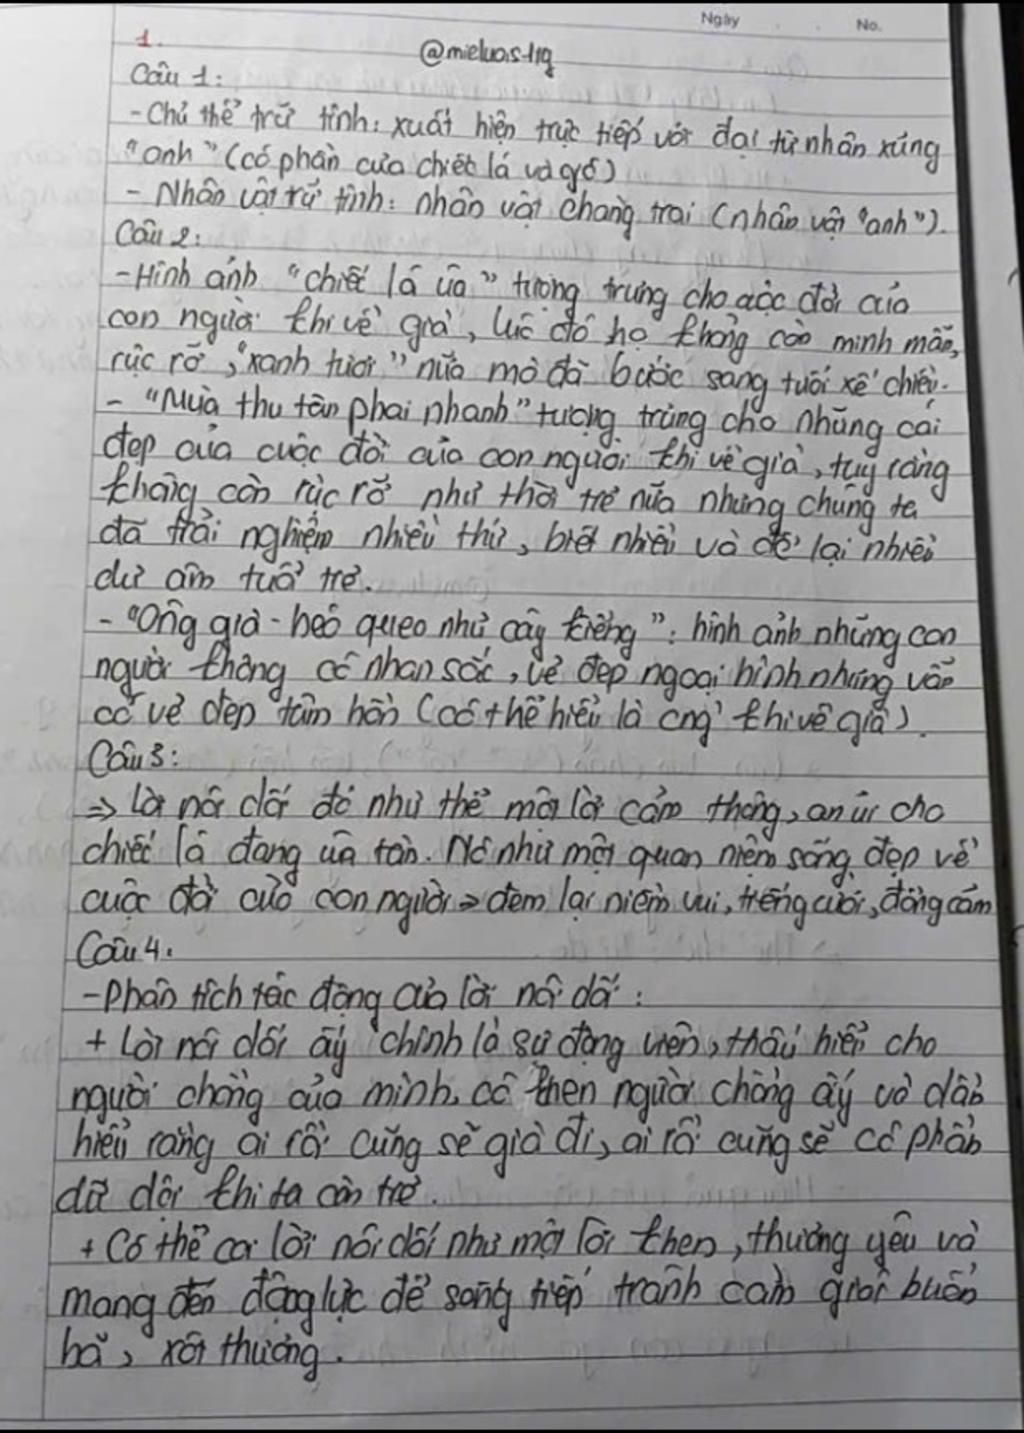 Ngày No.
1.
@mieluo.s1tq
Câu 1:
- Chủ thể trữ tình: xuất hiện trực tiếp với đại từ nhân xưng
"anh" (có phần của chiếc lá và gió)
- Nhân vật trữ tình: nhân vật chàng trai (nhân vật "anh").
Câu 2:
- Hình ảnh "chiếc lá úa" tượng trưng cho cuộc đời của
con người khi về già, lúc đó họ không còn minh mẫn,
rực rỡ, "xanh tươi" nữa mà đã bước sang tuổi xế chiều.
- "Mùa thu tàn phai nhanh" tượng trưng cho những cái
đẹp của cuộc đời của con người khi về già, tuy rằng
không còn rực rỡ như thời trẻ nữa nhưng chúng ta
đã trải nghiệm nhiều thứ, biết nhiều và để lại nhiều
dư âm tuổi trẻ.
- "Ông già - héo queo như cây kiểng": hình ảnh những con
người không có nhan sắc, vẻ đẹp ngoại hình nhưng vẫn
có vẻ đẹp tâm hồn (có thể hiểu là cng' khi về già).
Câu 3:
⇒ Lời nói dối đó như thể một lời cảm thông, an ủi cho
chiếc lá đang úa tàn. Nó như một quan niệm sống đẹp về
cuộc đời của con người ⇒ đem lại niềm vui, tiếng cười, đồng cảm
Câu 4:
- Phân tích tác động của lời nói dối:
+ Lời nói dối ấy chính là sự động viên, thấu hiểu cho
người chồng của mình, cô khen người chồng ấy và dẫn
hiểu rằng ai rồi cũng sẽ già đi, ai rồi cũng sẽ có phần
dữ dội khi ta còn trẻ.
+ Có thể coi lời nói dối như một lời khen, thương yêu và
mang đến động lực để sống tiếp tránh cảm giác buồn
bã, xót thương.